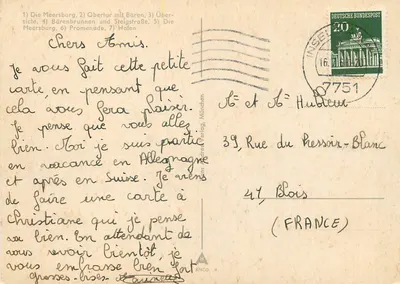 1) Die Meersburg, 2) Obertor mit Bären, 3) Über-
sicht, 4) Bärenbrunnen und Steigstraße, 5) Die
Meersburg, 6) Promenade, 7) Hafen
Chers Amis.
Je vous fait cette petite
carte, en pensant que
cela vous fera plaisir.
Je pense que vous allez
bien. Moi je suis partie
en vacance en Allemagne
et après en Suisse. Je viens
de faire une carte à
Christiane qui je pense
va bien. En attendant de
vous revoir bientôt, je
vous embrasse bien fort
grosses-bises
DEUTSCHE BUNDESPOST
20
INSEL
16.
7751
Mr et Me
39, Rue du Pressoir-Blanc
41, Blois
(FRANCE)
München